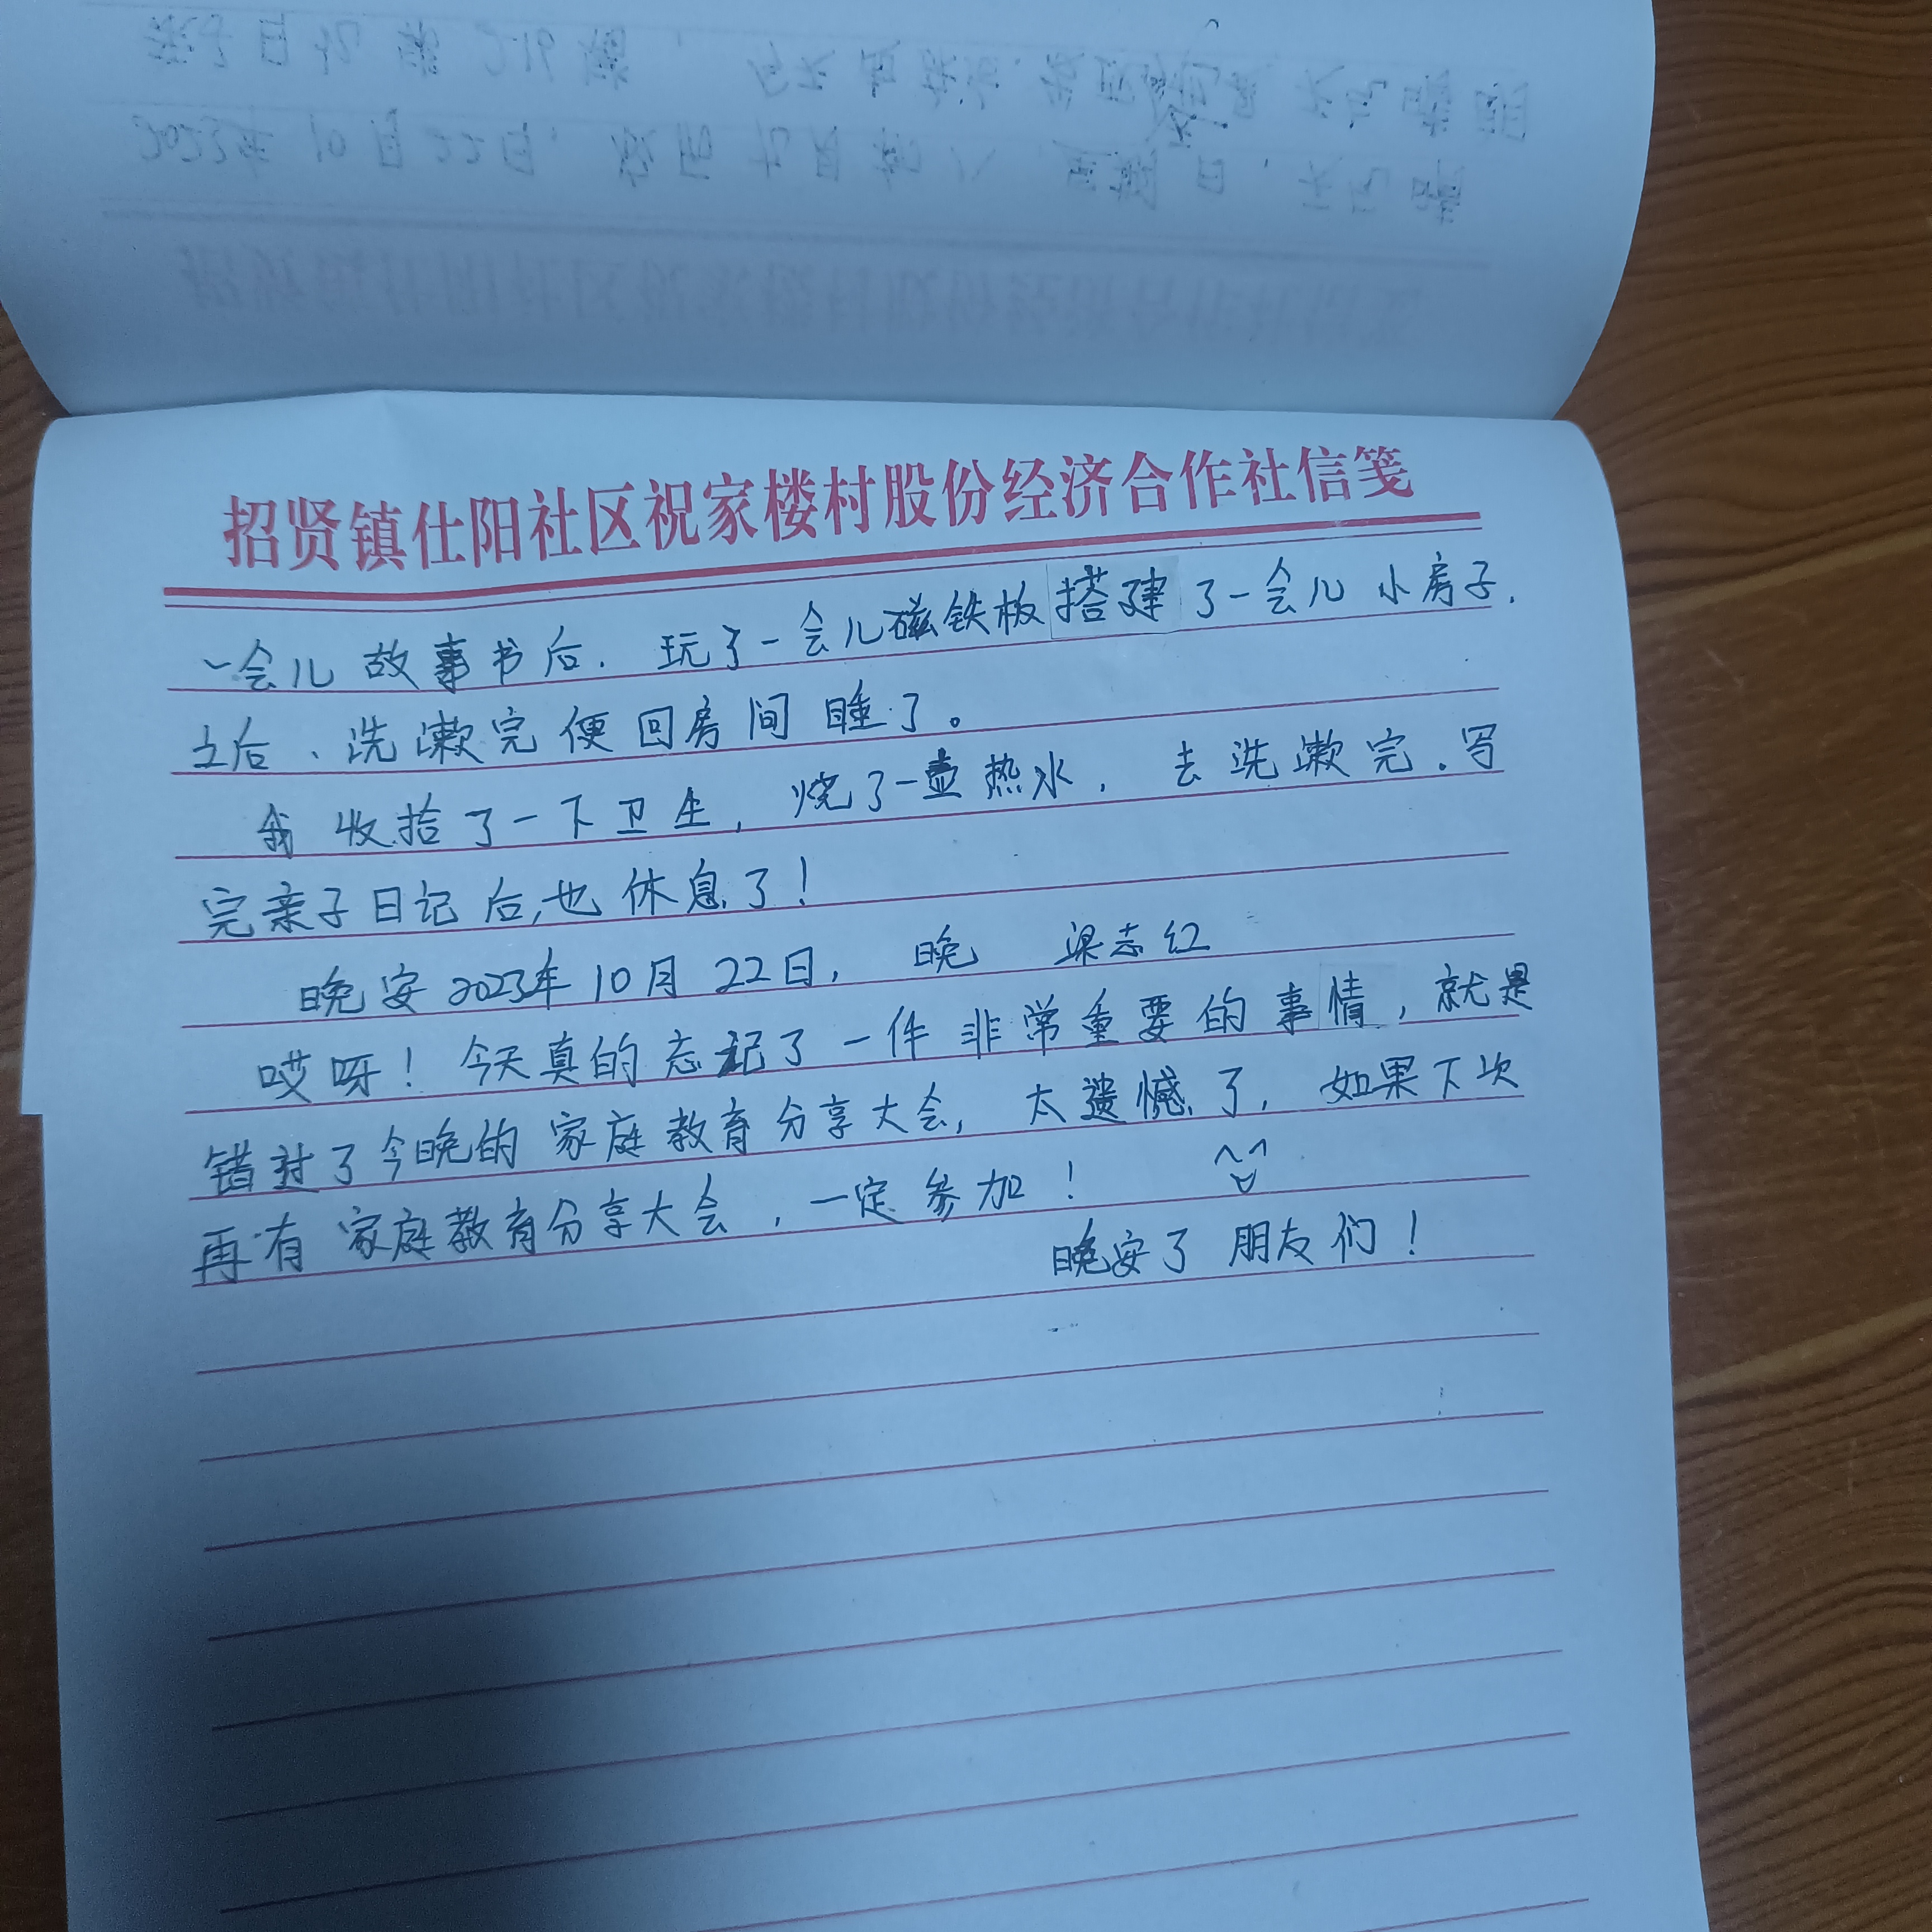 招贤镇仕阳社区祝家楼村股份经济合作社信笺
一会儿故事书后. 玩了一会儿磁铁板搭建了一会儿小房子.
之后、洗漱完便回房间睡了。
我收拾了一下卫生, 烧了一壶热水, 去洗漱完.写
完亲子日记后,也休息了!
晚安2023年10月22日, 晚 梁志红
哎呀! 今天真的忘记了一件非常重要的事情, 就是
错过了今晚的家庭教育分享大会, 太遗憾了, 如果下次
再有家庭教育分享大会, 一定参加!
晚安了朋友们!